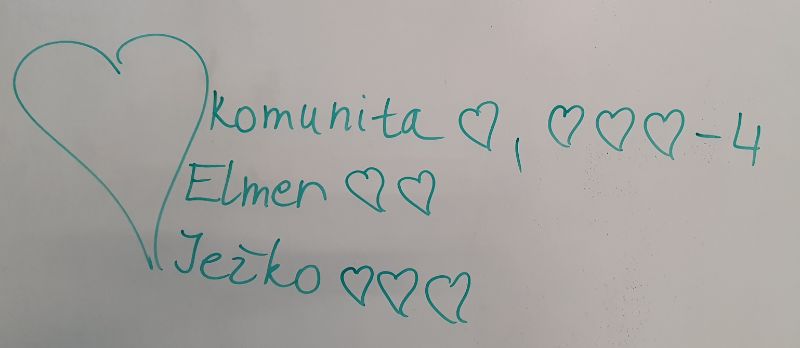 Komunita ♡, ♡♡♡-4
Elmer ♡♡
Ježko ♡♡♡